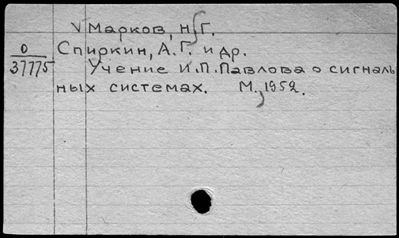 √ Марков, Н. Г.
О Спиркин, А. Г. и др.
37775 Учение И. П. Павлова о сигналь
ных системах. М., 1952.